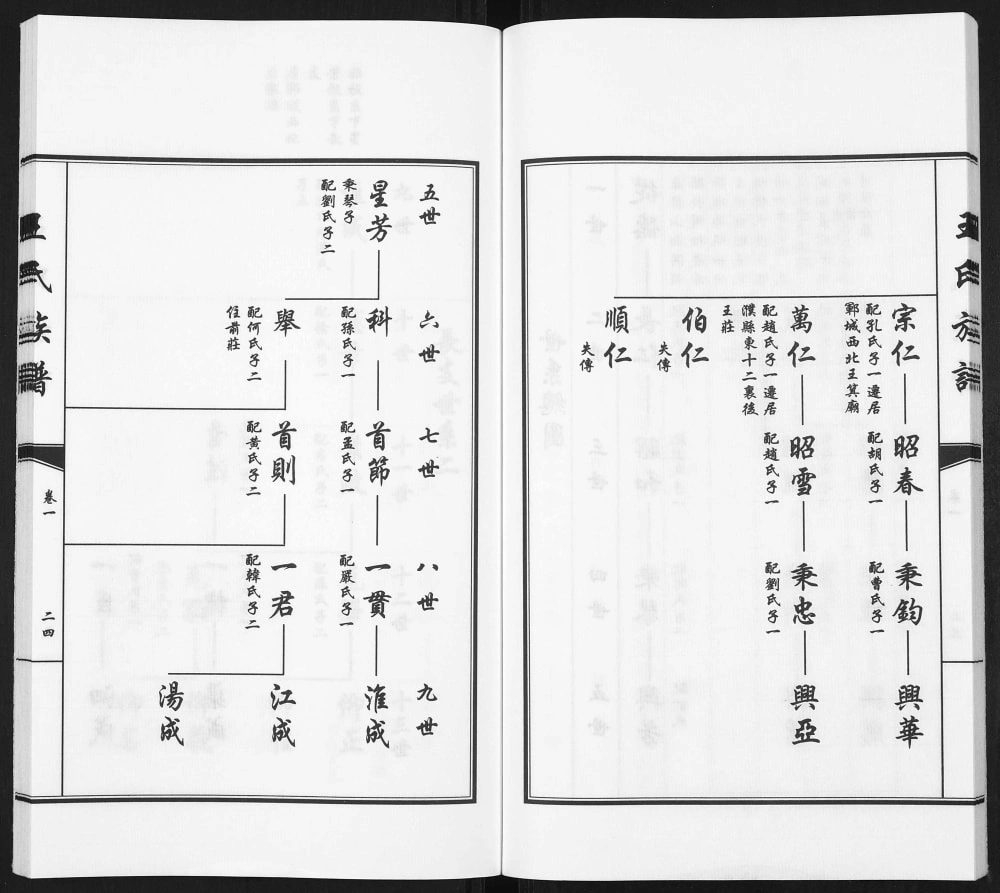 王氏族譜
宗仁
配孔氏子一遷居
鄆城西北王箕廟
昭春
配胡氏子一
秉鈞
配曹氏子一
興華
萬仁
配趙氏子一遷居
濮縣東十二裏後
王莊
昭雪
配趙氏子一
秉忠
配劉氏子一
興亞
伯仁
失傳
順仁
失傳
五世
六世
七世
八世
九世
星芳
秉琴子
配劉氏子二
科
配孫氏子一
首節
配孟氏子一
一貫
配嚴氏子一
淮成
舉
配何氏子二
住前莊
首則
配黃氏子二
一君
配韓氏子二
江成
湯成
王氏族譜
卷一
二四